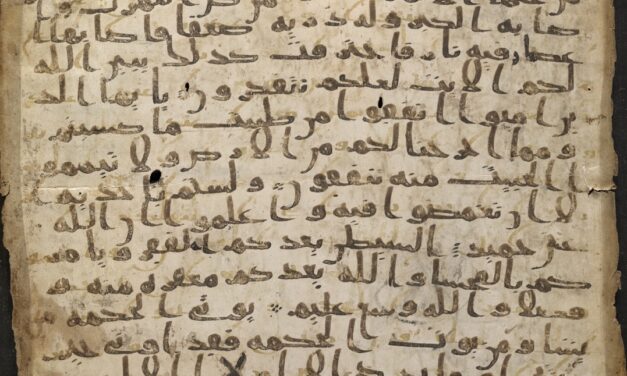 صابه الكبر وله ذريه ضعفا فاصابها
اعصار فيه نار فاحترقت كذلك يبين الله
لكم الايت لعلكم تتفكرون يايها الذ
ين امنوا انفقوا من طيبت ما كسبتم
ومما اخرجنا لكم من الارض ولا تيممو
ا الخبيث منه تنفقون ولستم باخذيه ا
لا ان تغمضوا فيه واعلموا ان الله
غني حميد الشيطن يعدكم الفقر ويامر
كم بالفحشا والله يعدكم مغفره منه و
فضلا والله وسع عليم يوتي الحكمه من
يشا ومن يوت الحكمه فقد اوتي خير